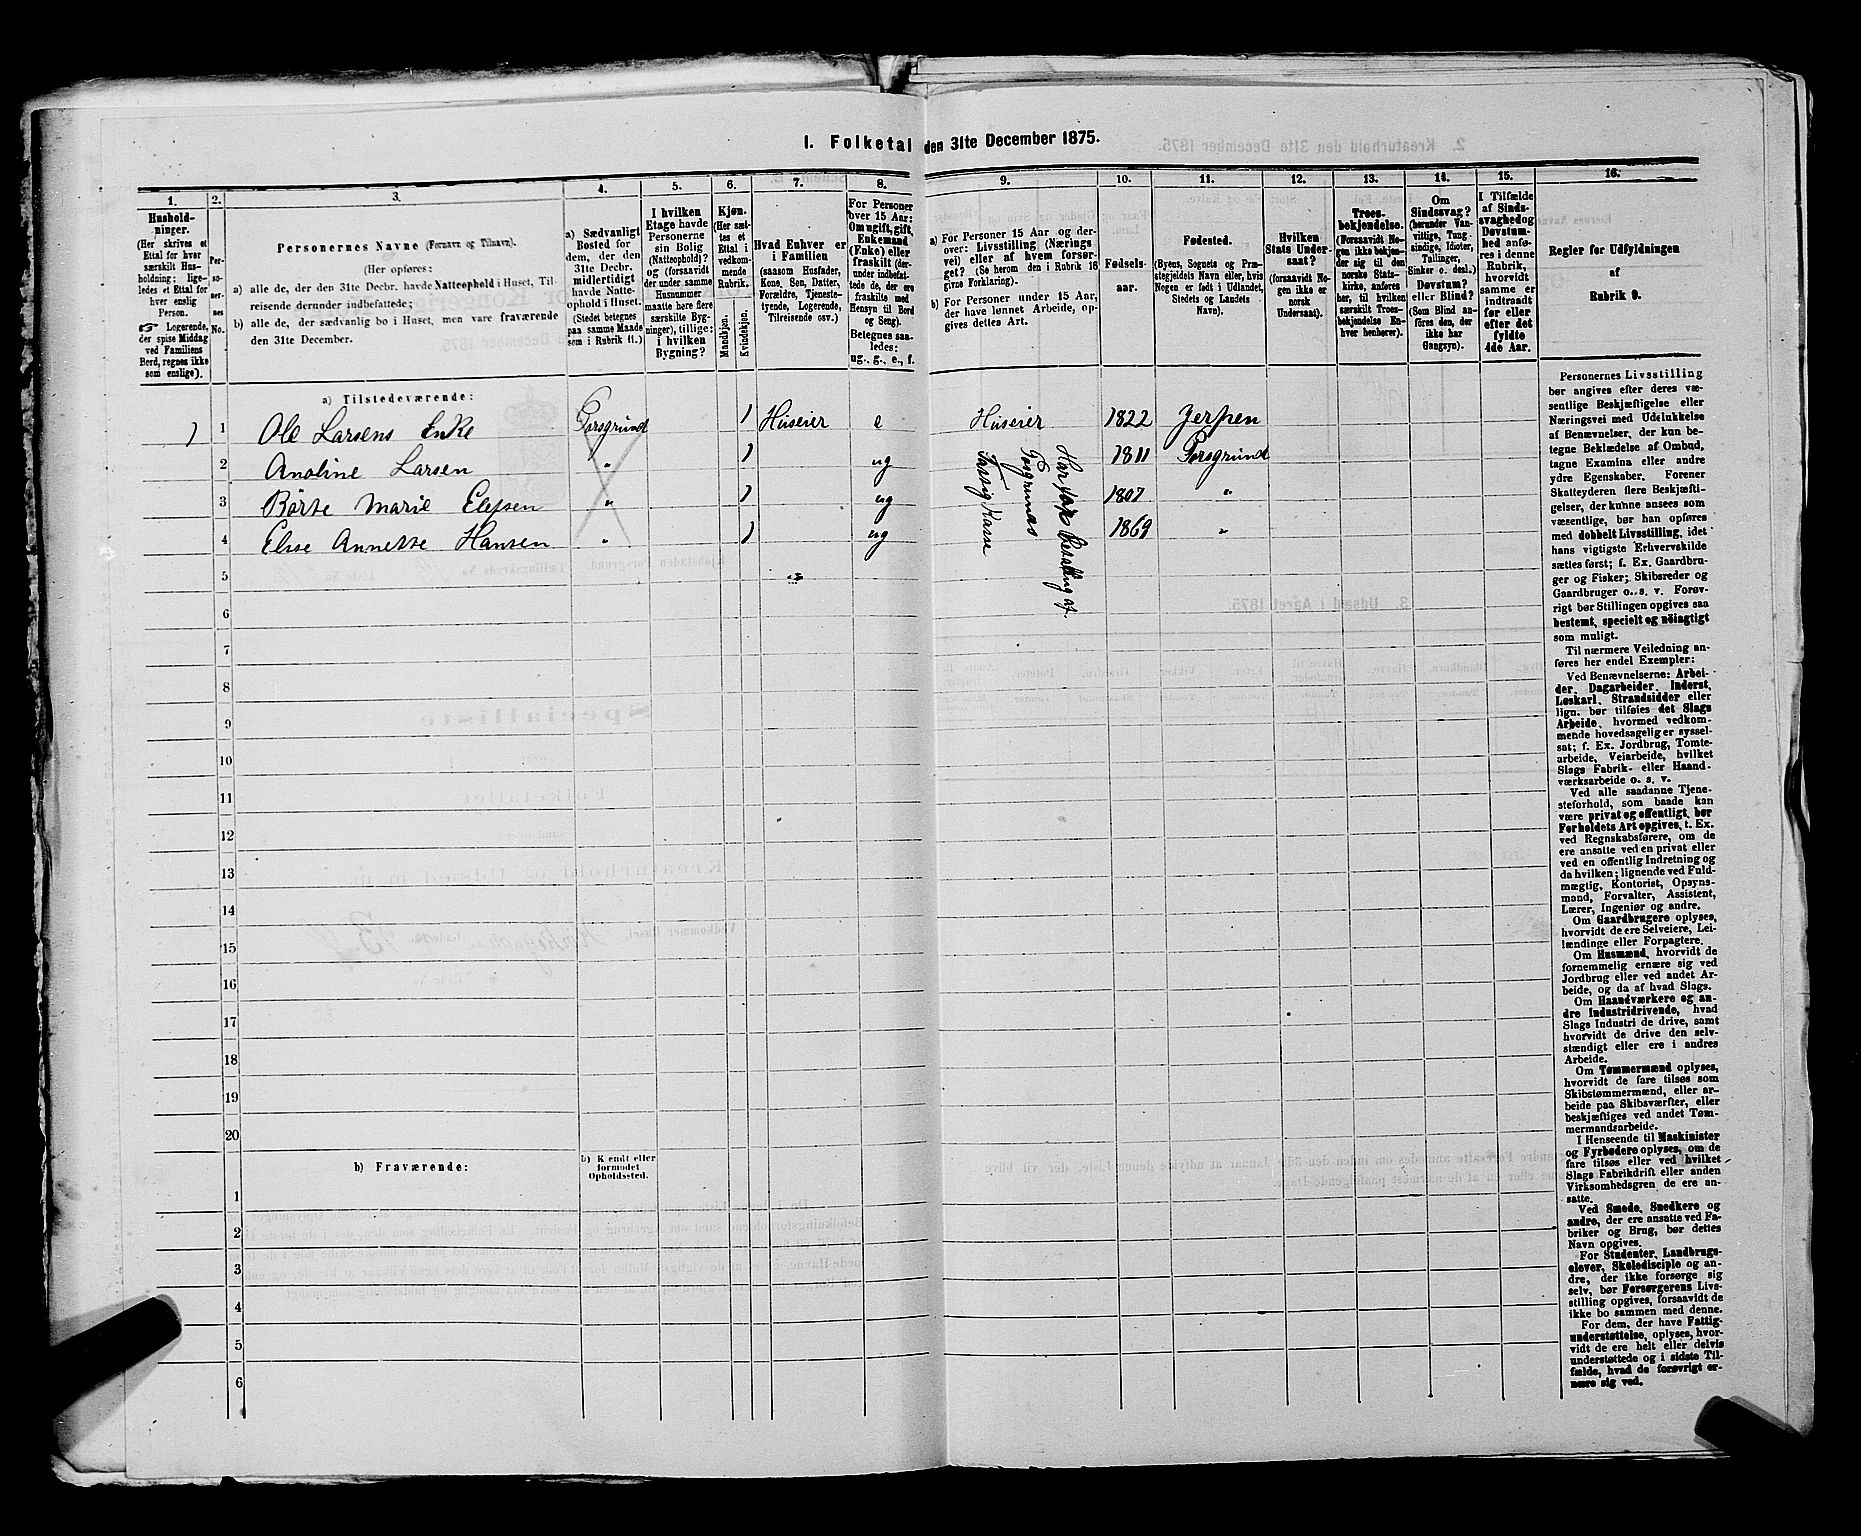 I. Folketal den 31te December 1875.
1. 2. 3. 4. 5. 6. 7. 8. 9. 10. 11. 12. 13. 14. 15. 16.
Hushold-
ninger.
(Her skrives et
Ettal for hver
særskilt Hus-
holdning; lige-
ledes et Ettal for
hver enslig
Person.
☞ Logerende,
der spise Middag
ved Familiens
Bord, regnes ikke
som enslige).
Per-
so-
ner-
nes
No.
Personernes Navne (Fornavn og Tilnavn).
(Her opføres:
a) alle de, der den 31te Decbr. havde Natteophold i Huset, Til-
reisende derunder indbefattede;
b) alle de, der sædvanlig bo i Huset, men vare fraværende
den 31te December.
a) Sædvanligt
Bosted for
dem, der den
31te Decbr.
midlertidigt
havde Natte-
ophold i Huset.
(Stedet betegnes
paa samme Maade
som i Rubrik 11.)
I hvilken
Etage havde
Personerne
sin Bolig
(Natteophold)?
og (forsaavidt
der under samme
Husnummer
maatte høre flere
særskilte Byg-
ninger), tillige:
i hvilken
Bygning?
Kjøn.
(Her sæt-
tes et
Ettal i
vedkom-
mende
Rubrik.
Mandkjøn.
Kvindekjøn.
Hvad Enhver er
i Familien
(saasom Husfader,
Kone, Søn, Datter,
Forældre, Tjeneste-
tyende, Logerende,
Tilreisende osv.)
For Personer
over 15 Aar:
Om ugift, gift,
Enkemand
(Enke) eller
fraskilt (der-
under indbefat-
tede de, der ere
fraskilte med
Hensyn til Bord
og Seng).
Betegnes saa-
ledes:
ug., g., e., f.
a) For Personer 15 Aar og der-
over: Livsstilling (Nærings
vei) eller af hvem forsør-
get? (Se herom den i Rubrik 16
givne Forklaring).
b) For Personer under 15 Aar,
der have lønnet Arbeide, op-
gives dettes Art.
Fødsels-
aar.
Fødested.
(Byens, Sognets og Præ-
stegjeldets Navn eller, hvis
Nogen er født i Udlandet,
Stedets og Landets
Navn).
Hvilken
Stats Under-
saat?
(forsaavidt No-
gen ikke er
norsk
Undersaat).
Troes-
bekjendelse.
(Forsaavidt No-
gen ikke bekjen-
der sig til den
norske Stats-
kirke, anføres
her, til hvilken
særskilt Troes-
bekjendelse En-
hver henhører).
Om
Sindssvag?
(herunder Van-
vittige, Tung-
sindige, Idioter,
Tullinger,
Sinker o. desl.)
Døvstum?
eller Blind?
(Som Blind an-
føres den, der
ikke har
Gangsyn).
I Tilfælde
af Sinds-
svaghed og
Døvstum-
hed anfø-
res i denne
Rubrik,
hvorvidt
samme er
indtraadt
før eller
efter det
fyldte
4de Aar.
Regler for Udfyldningen
af
Rubrik 9.
a) Tilstedeværende:
1 1 Ole Larsens Enke Porsgrund 1 Huseier e Huseier 1822 Jerpen
2 Anoline Larsen " 1 ug 1811 Porsgrund
3 Børte Marie Elefsen " 1 ug 1807 "
4 Elise Annette Hansen " 1 ug 1869 "
Har faar Betalling af
Porsgrunds
Fattig Kasse
5 "
6
7
8
9
10
11
12
13
14
15
16
17
18
19
20
b) Fraværende:
b) Kjendt eller
formodet
Opholdssted.
1
2
3
4
5
6
Personernes Livsstilling
bør angives efter deres væ-
sentlige Beskjæftigelse eller
Næringsvei med Udelukkelse
af Benævnelser, der kun be-
tegne Beklædelse af Ombud,
tagne Examina eller andre
ydre Egenskaber. Forener
Skatteyderen flere Beskjæfti-
gelser, der kunne ansees som
væsentlige, bør han opføres
med dobbelt Livsstilling, idet
hans vigtigste Erhvervskilde
sættes først; f. Ex. Gaardbru-
ger og Fisker; Skibsreder og
Gaardbruger o. s. v. Forøv-
rigt bør Stillingen opgives saa
bestemt, specielt og nøiagtigt
som muligt.
Til nærmere Veiledning an-
føres her endel Exempler:
Ved Benævnelserne: Arbei-
der, Dagarbeider, Inderst,
Løskarl, Strandsidder eller
lign. bør tilføies det Slags
Arbeide, hvormed vedkom-
mende hovedsagelig er syssel-
sat; f. Ex. Jordbrug, Tomte-
arbeide, Veiarbeide, hvilket
Slags Fabrik- eller Haand-
værksarbeide o. s. v.
Ved alle saadanne Tjene-
steforhold, som baade kan
være privat og offentligt, bør
Forholdets Art opgives, t. Ex.
ved Regnskabsførere, om de
ere ansatte ved en privat eller
ved en offentlig Indretning og
da hvilken; lignende ved Fuld-
mægtig, Kontorist, Opsyns-
mand, Forvalter, Assistent,
Lærer, Ingeniør og andre.
Om Gaardbrugere oplyses,
hvorvidt de ere Selveiere, Lei-
lændinge eller Forpagtere.
Om Husmænd, hvorvidt de
fornemmelig ernære sig ved
Jordbrug eller ved andet Ar-
beide, og da af hvad Slags.
Om Haandværkere og an-
dre Industridrivende, hvad
Slags Industri de drive, samt
hvorvidt de drive den selv-
stændigt eller ere i andres
Arbeide.
Om Tømmermænd oplyses,
hvorvidt de fare tilsøs som
Skibstømmermænd, eller ar-
beide paa Skibsværfter, eller
beskjæftiges ved andet Tøm-
mermandsarbeide.
I Henseende til Maskinister
og Fyrbødere oplyses, om de
fare tilsøs eller ved hvilket
Slags Fabrikdrift eller anden
Virksomhedsgren de ere an-
satte.
Ved Smede, Snedkere og
andre, der ere ansatte ved Fa-
briker og Brug, bør dettes
Navn opgives.
For Studenter, Landbrugs-
elever, Skoledisciple og an-
dre, der ikke forsørge sig
selv, bør Forsørgerens Livs-
stilling opgives, forsaavidt de
ikke bo sammen med denne.
For dem, der have Fattig-
understøttelse, oplyses, hvor-
vidt de ere helt eller delvis
understøttede og i sidste Til-
fælde, hvad de forøvrigt er-
nære sig ved.